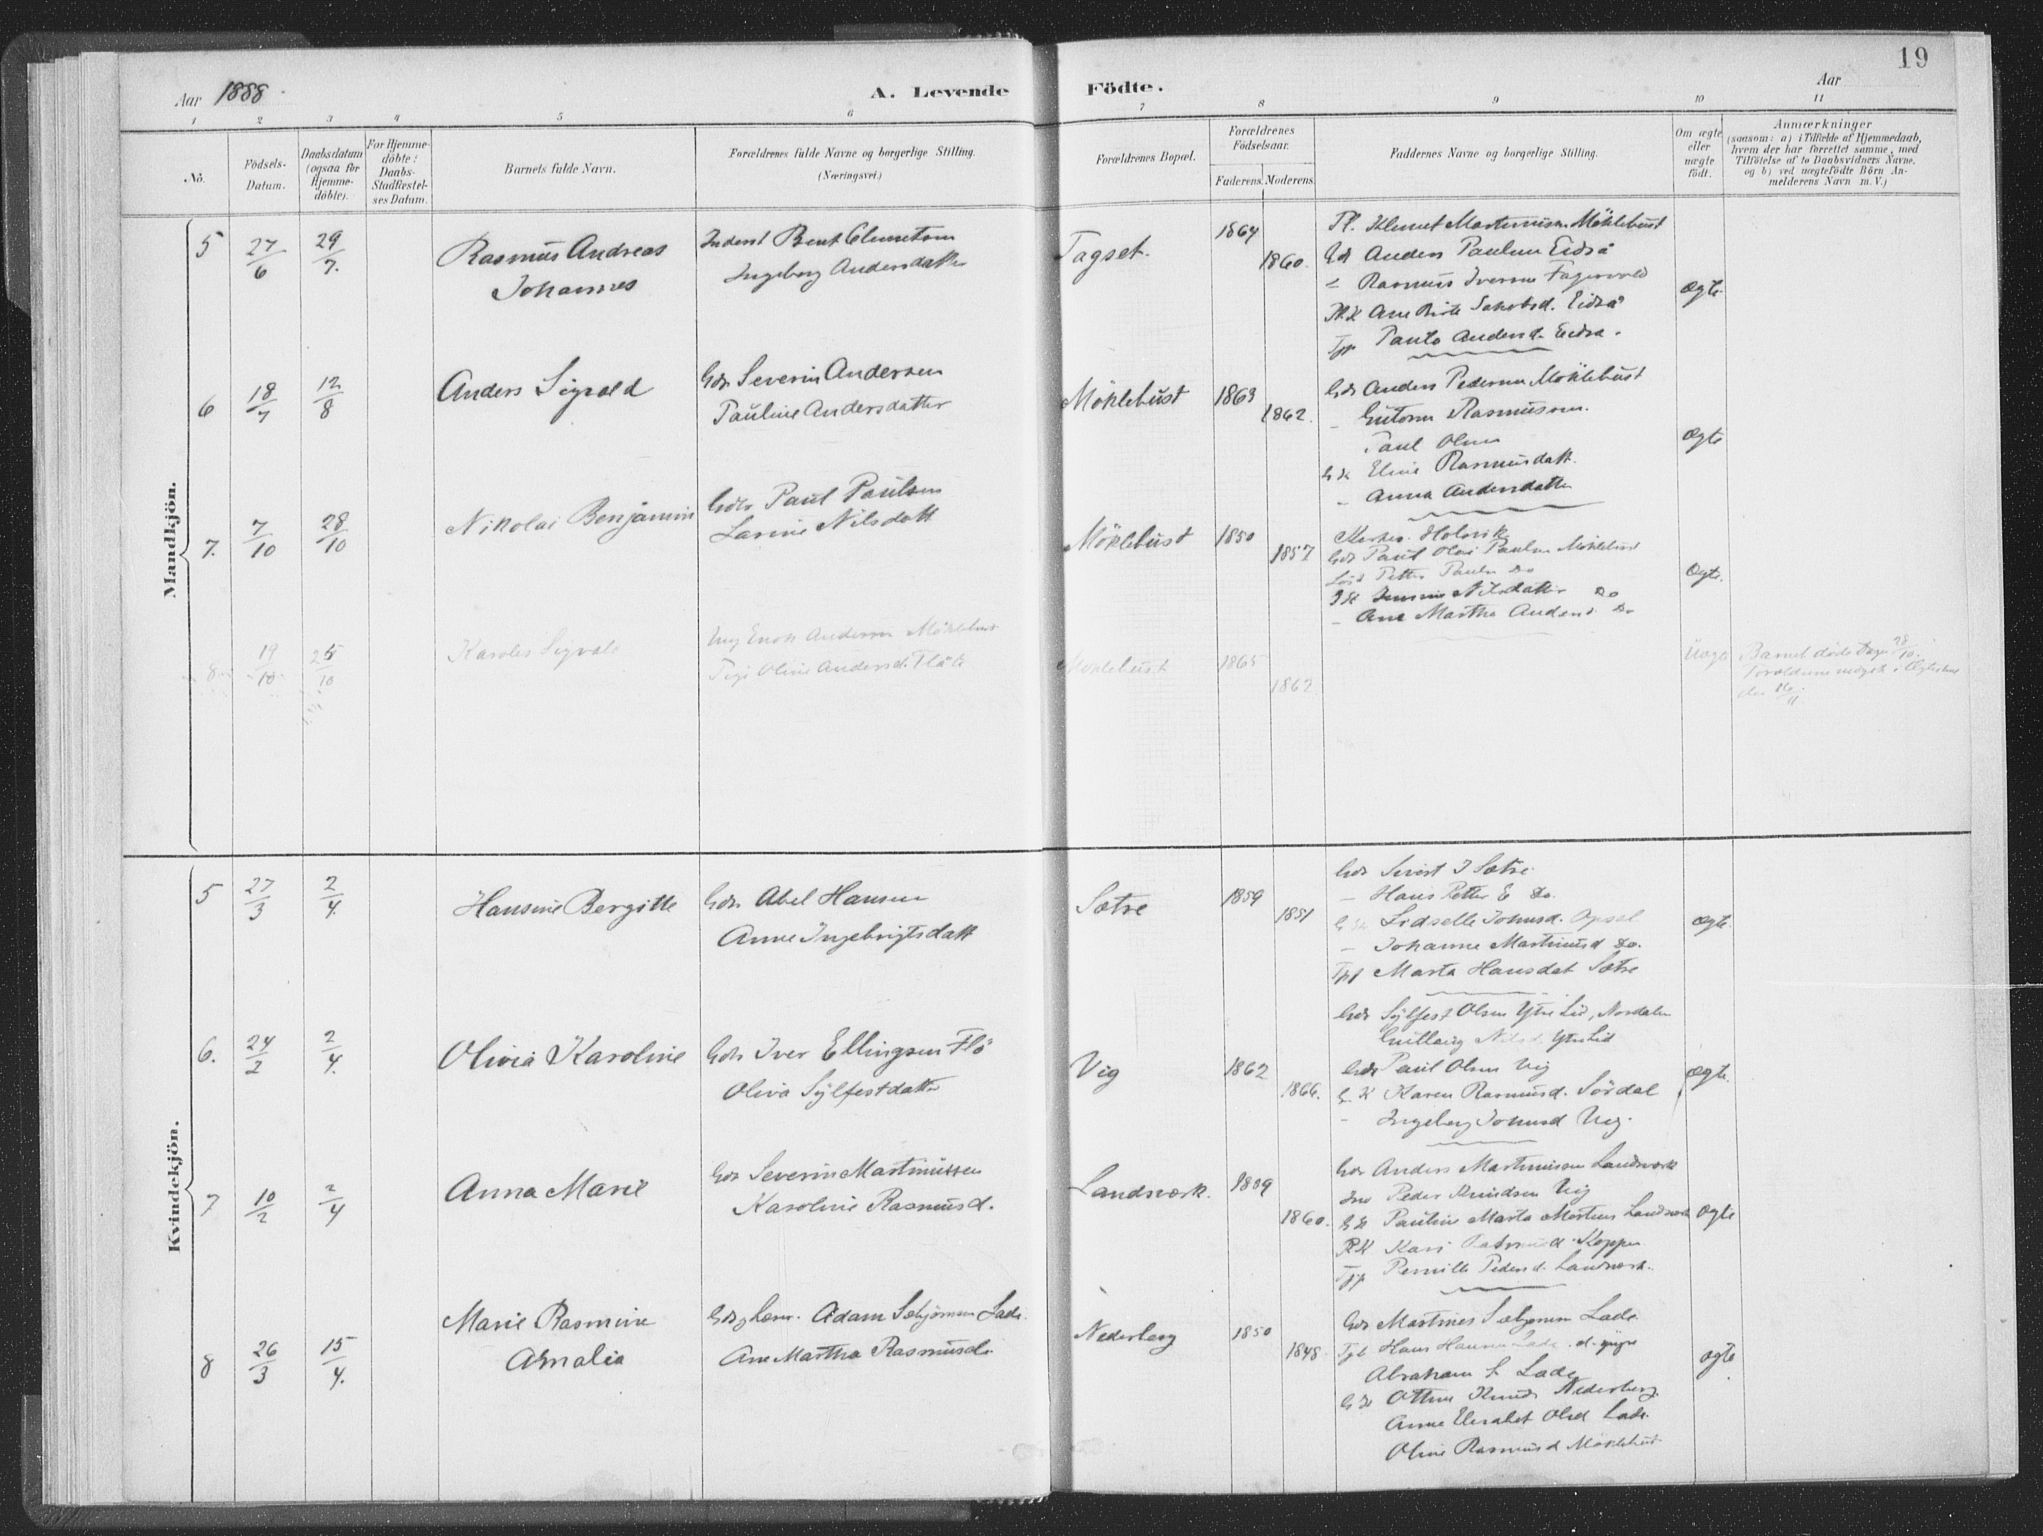 19
Aar 1888.
A. Levende Födte.
Aar
1 2 3 4 5 6 7 8 9 10 11
No.
Födsels-Datum.
Daabsdatum (ogsaa for Hjemme-döbte).
For Hjemme-döbte: Daabs-Stadfæstel-ses Datum.
Barnets fulde Navn.
Forældrenes fulde Navne og borgerlige Stilling.
(Næringsvei.)
Forældrenes Bopæl.
Forældrenes Födselsaar.
Faderens. Moderens.
Faddernes Navne og borgerlige Stilling.
Om ægte eller uægte födt.
Anmærkninger
(saasom: a) i Tilfælde af Hjemmedaab,
hvem der har forrettet samme, med
Tilföielse af to Daabsvidners Navne.
og b) ved uægtefödte Börn An-
melderens Navn m. V.)
Mandkjön.
5 27/6 29/7.
Rasmus Andreas
Johannes
Inderst Bent Clemetsen
Ingeborg Andersdatter
Tagset.
1864
1860.
Klemet Martinusen Möklebust
Anders Paulsen Eidså
Rasmus Iversen Fagervold
Ane Birte Jakobsd. Eidså
Anders d. Eidsa.
Ægte.
6 18/7 12/8
Anders Sigvald
Gdr. Severin Andersen
Pauline Andersdatter
Möklebust
1863
1862.
Gdr Anders Pedersen Möklebust
- Gutorm Rasmussen.
Paul Olsen
G K Eline Rasmusdatt.
- Anna Andersdatter
Ægte
7. 7/10 28/10
Nikolai Benjamin
Gdbr Paul Paulsen
Larine Nilsdatt
Möklebust
1850
1857
Holsvik
Gdr Paul Olai Paulsen Möklebust
Petter Paulsen Do
Nilsdatter Do
- Ane Martha Anders d. Do
Ægte.
8 19/10 25/10
Karoles Sigvald
Ung Enok Andersen Möklebust
Pige Oline Andersd. Flåte
Möklebust
1865
1862
Uægte
Barnet döde 28/10.
Forældrene i Ægteskab
den 16/11
Kvindekjön.
5 27/3 2/4.
Hansine Bergitte
Gdr. Abel Hansen
Anne Ingebrigtsdatt
Sætre
1859
1851
Gdr Sivert J Sætre.
- Hans Petter E Do.
G K Lidselle Johnsd. Opsal
- Johanne Martinusd Do.
Marta Hansdat Sætre
Ægte
6. 24/2 2/4.
Olivia Karoline
Gdr. Iver Ellingsen Flö
Oliva Sylfestdatter
Vig
1862
1866.
Gdr Sylfest Olsen Ytre Lid, Nordalen
Nilsd. Ytre Lid
Gdr Paul Olsen Vig
G. K Karen Rasmusd. Sördal
- Ingeborg Johnsd Vig.
Ægte.
7 10/2 2/4
Anna Marie
Gdr Severin Martinussen
Karoline Rasmusd.
Landsværk.
1859
1860.
Gdr Anders Martinusen Landsværk
Peder Knudsen Vig
G K Pauline Marta Martins Landsværk
Kari Rasmusd. Koppen
Pernille Pedersd. Landsværk.
Ægte
8 26/3 15/4.
Marie Rasmine
Amalia
Adam Sebjörnsen Lade.
Ane Martha Rasmusd.
Nederberg
1850
1848.
Gdr Martines Sebjörnsen Lade
Hans Hansen Lade d. yngre
Abraham S Lade
G K Ottine Knuds Nederberg.
Anne Elisabet Olsd Lade.
Oline Rasmusd Möklebust
Ægte